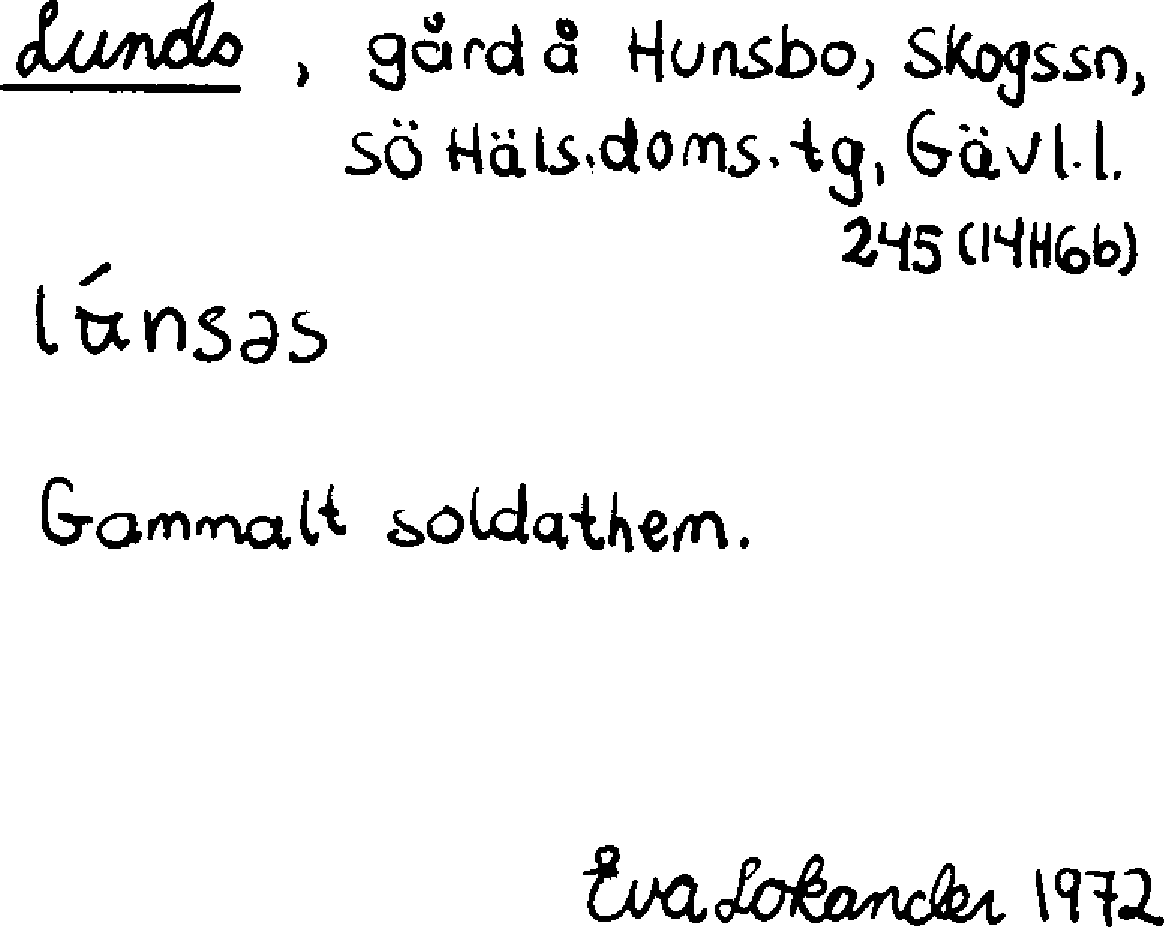 Lunds, gård å Hunsbo, Skogssn,
sö Häls.doms.tg, Gävl.l.
245 (14H6b)
lúnsəs
Gammalt soldathem.
Eva Lokander 1972